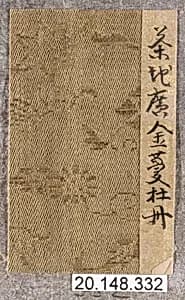 茶地廣金蔓牡丹
20.148.332